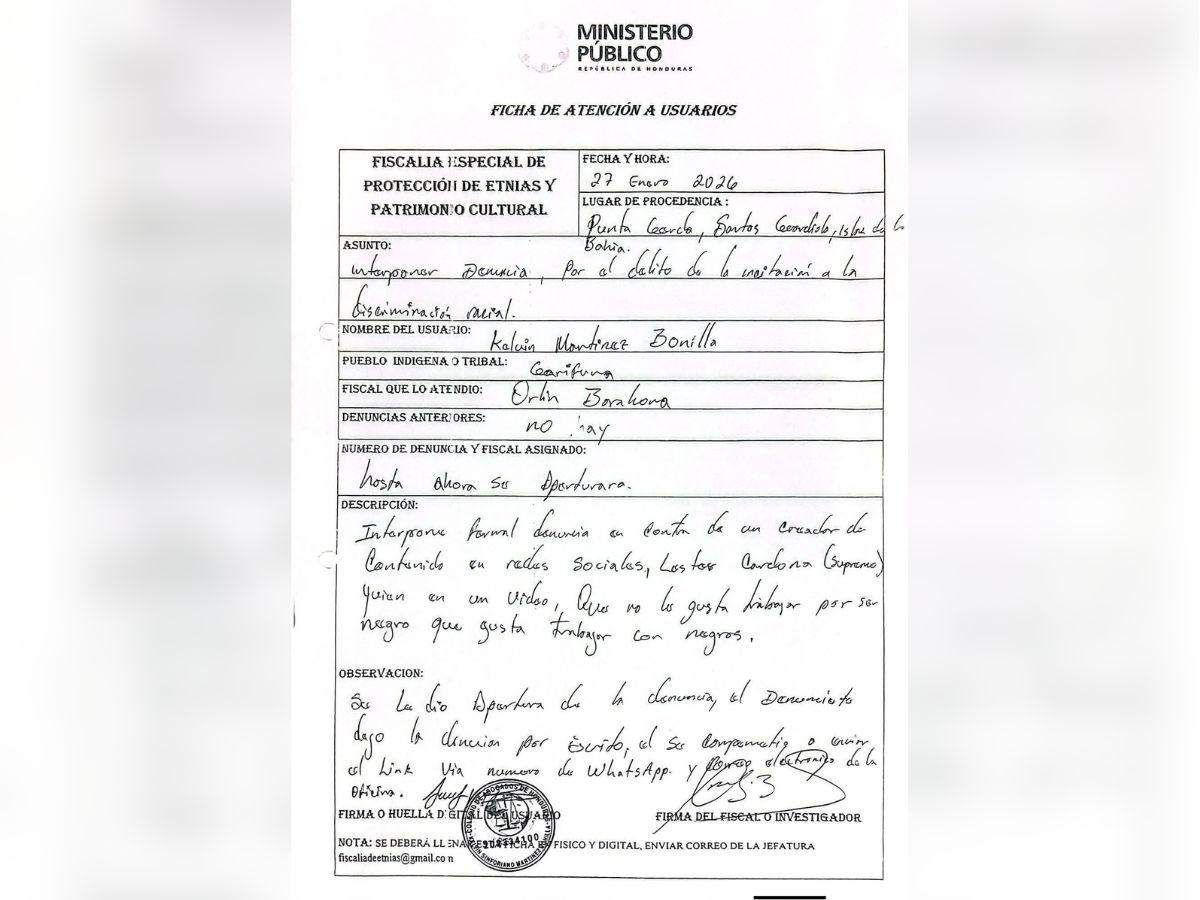 MINISTERIO
PÚBLICO
REPÚBLICA DE HONDURAS
FICHA DE ATENCIÓN A USUARIOS
FISCALIA ESPECIAL DE
PROTECCIÓN DE ETNIAS Y
PATRIMONIO CULTURAL
FECHA Y HORA:
27 Enero 2026
LUGAR DE PROCEDENCIA :
Punta Gorda, Santos Guardiola, Islas de la
Bahia.
ASUNTO:
interponer Denuncia, Por el delito de la incitación a la
discriminación racial.
NOMBRE DEL USUARIO:
Kelvin Martinez Bonilla
PUEBLO INDIGENA O TRIBAL:
Garifuna
FISCAL QUE LO ATENDIO:
Orlin Barahona
DENUNCIAS ANTERIORES:
no hay
NUMERO DE DENUNCIA Y FISCAL ASIGNADO:
hasta Ahora se Aperturara.
DESCRIPCIÓN:
Interpone formal denuncia en contra de un creador de
Contenido en redes Sociales, Lester Cardona (Supremo)
quien en un video, Que no le gusta trabajar por ser
negro que gusta trabajar con negros.
OBSERVACION:
Se Le dio Apertura de la denuncia, el Denunciante
dejo la denuncia por Escrito, el se a enviar
el Link Via numero de WhatsApp. y Correo electronico de la
Oficina.
FIRMA O HUELLA DIGITAL DEL USUARIO
FIRMA DEL FISCAL O INVESTIGADOR
COLEGIO DE ABOGADOS DE HONDURAS
SINFORIANO MARTINEZ BONILLA
NOTA: SE DEBERÁ LLENAR ESTA FICHA EN FISICO Y DIGITAL, ENVIAR CORREO DE LA JEFATURA
fiscaliadeetnias@gmail.com